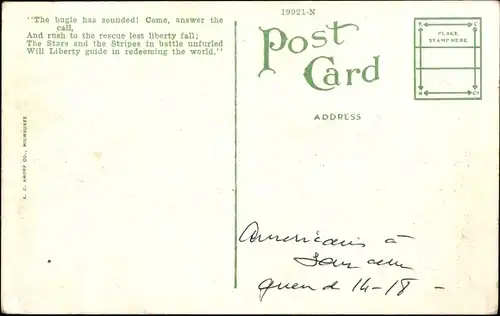 "The bugle has sounded! Come, answer the
call,
And rush to the rescue lest liberty fall;
The Stars and the Stripes in battle unfurled
Will Liberty guide in redeeming the world."
19921-N
Post
Card
ADDRESS
PLACE
STAMP HERE
E. C. KROPP CO., MILWAUKEE
Américains à
14-18 -